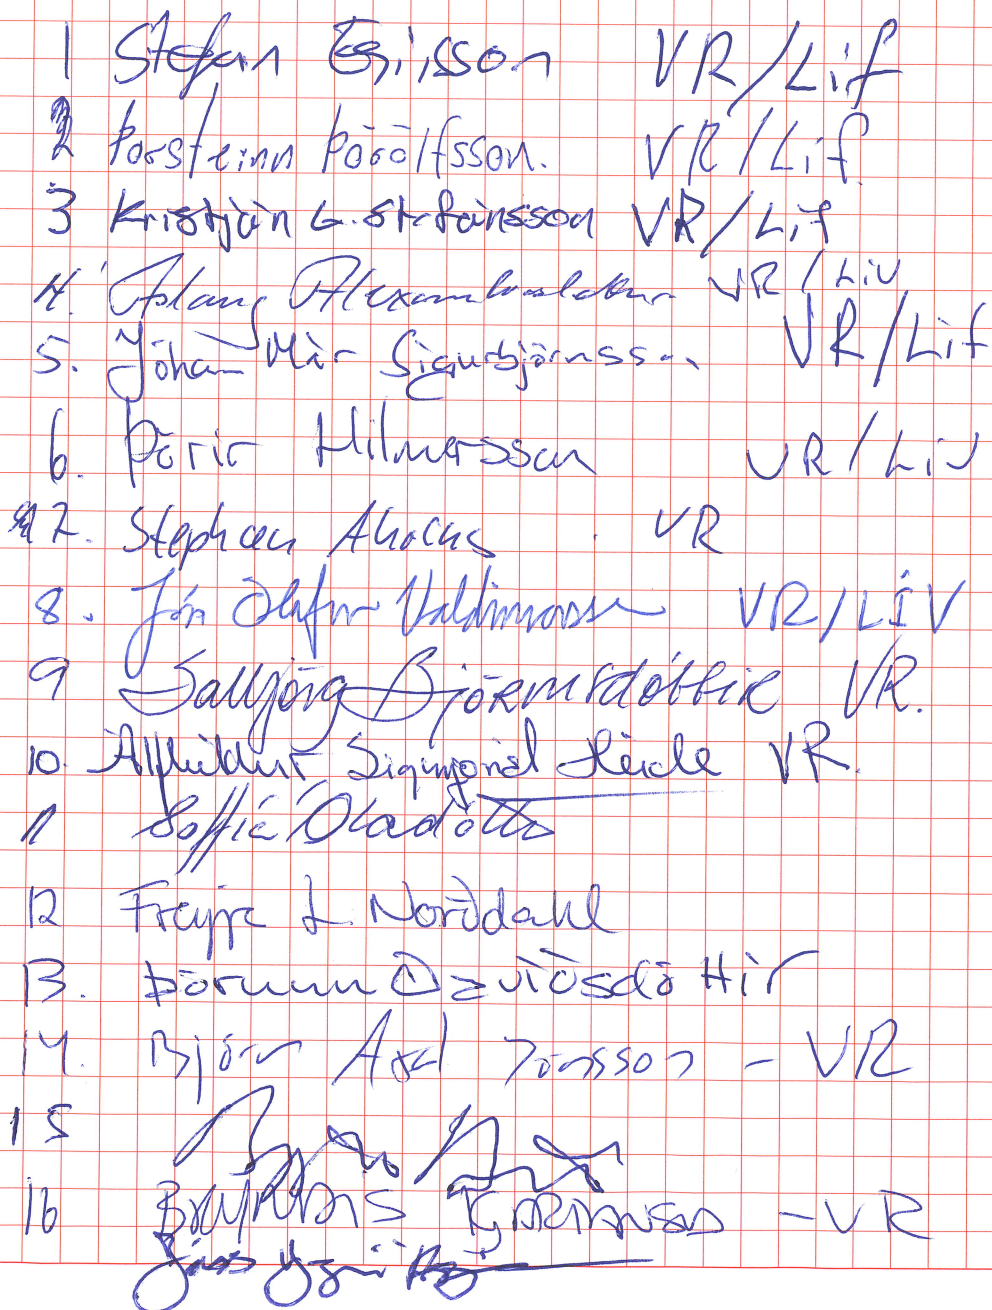 1 Stefan Egilsson VR/Lif
2 Þorsteinn Þórólfsson. VR/Lif.
3 Kristján G. Stefánsson VR/Lif
4. VR/Liv
5. Jóhann Már Sigurbjörnsson VR/Lif
6. Þórir Hilmarsson VR/Liv
7. Stephen VR
8. Jón Ólafur Valdimarsson VR/LÍV
9 Sallbjörg Björnsdóttir VR.
10. Álfhildur Sigurjónsd Heide VR.
11 Soffía Óladóttir
12 Freyja L Norðdahl
13. Þórunn Davíðsdóttir
14. Björn Axel Jónsson - VR
15
16 - VR